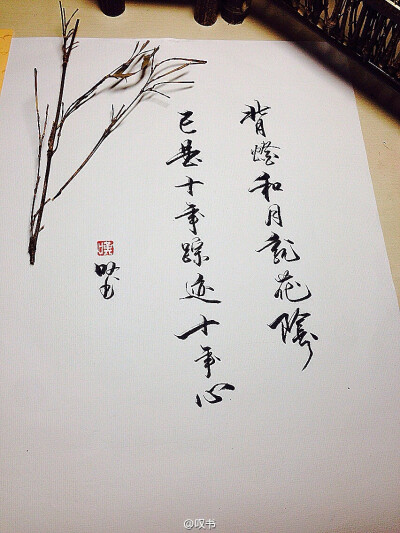 背燈和月就花陰
已是十年踪迹十年心
@叹书